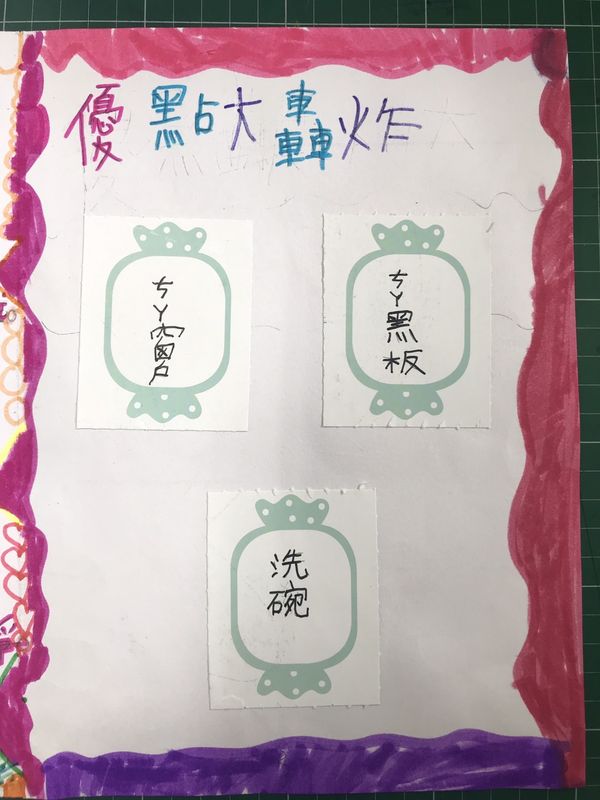 優點大轟炸
ㄘㄚ窗戶
ㄘㄚ黑板
洗碗